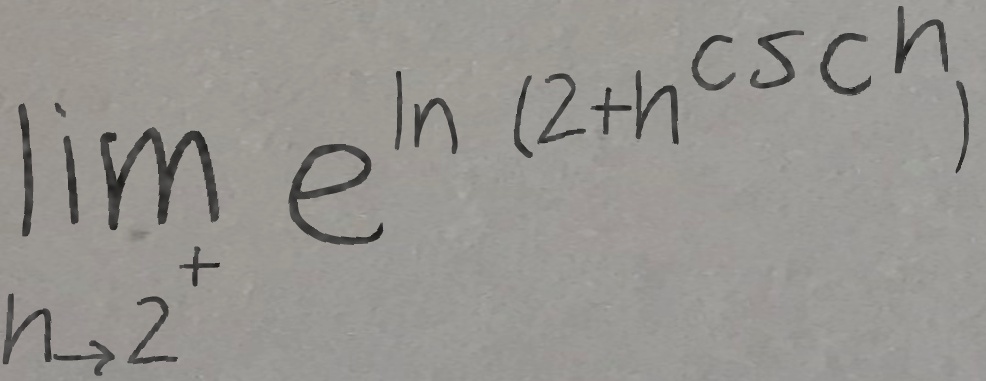 lim_{h→2^+} e^{ln (2+h^{csc h})}